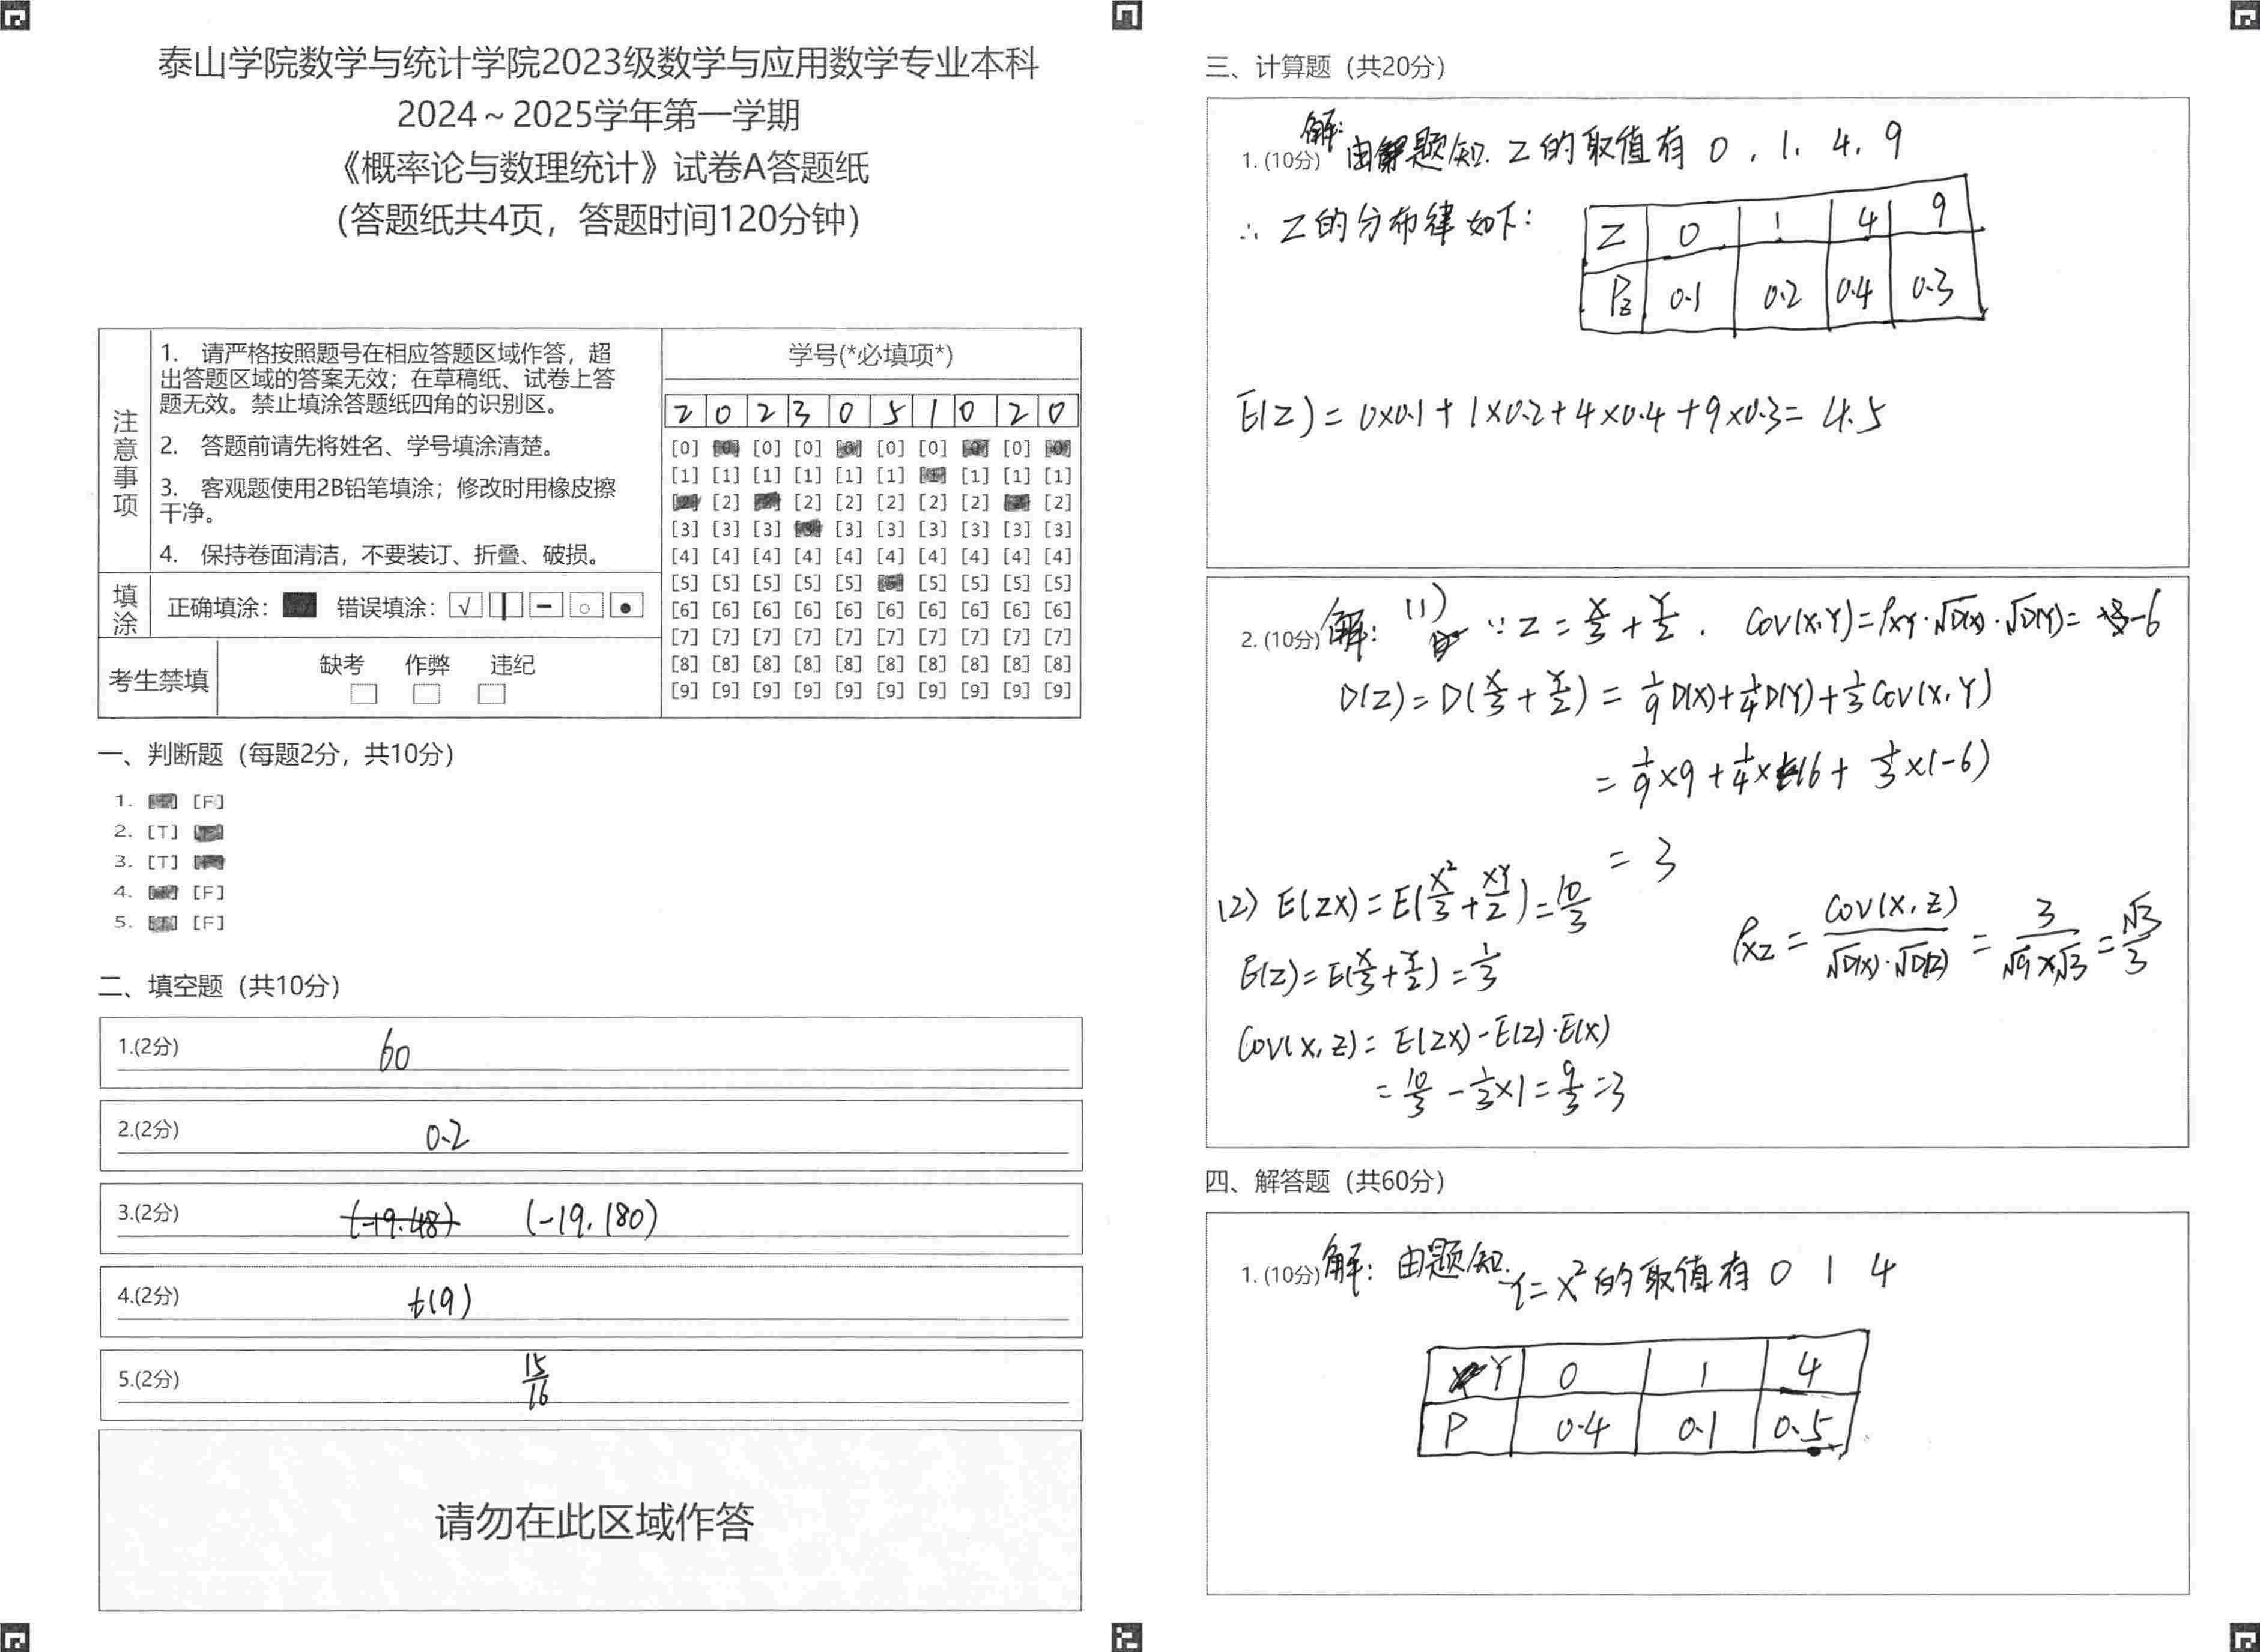 泰山学院数学与统计学院2023级数学与应用数学专业本科
2024～2025学年第一学期
《概率论与数理统计》试卷A答题纸
（答题纸共4页，答题时间120分钟）
注意事项
1. 请严格按照题号在相应答题区域作答，超
出答题区域的答案无效；在草稿纸、试卷上答
题无效。禁止填涂答题纸四角的识别区。
2. 答题前请先将姓名、学号填涂清楚。
3. 客观题使用2B铅笔填涂；修改时用橡皮擦
干净。
4. 保持卷面清洁，不要装订、折叠、破损。
填涂 正确填涂： 错误填涂： √
考生禁填 缺考 作弊 违纪
学号(*必填项*)
2 0 2 3 0 5 1 0 2 0
[0] [0] [0] [0] [0] [0]
[1] [1] [1] [1] [1] [1] [1] [1] [1]
[2] [2] [2] [2] [2] [2] [2]
[3] [3] [3] [3] [3] [3] [3] [3] [3]
[4] [4] [4] [4] [4] [4] [4] [4] [4] [4]
[5] [5] [5] [5] [5] [5] [5] [5] [5]
[6] [6] [6] [6] [6] [6] [6] [6] [6] [6]
[7] [7] [7] [7] [7] [7] [7] [7] [7] [7]
[8] [8] [8] [8] [8] [8] [8] [8] [8] [8]
[9] [9] [9] [9] [9] [9] [9] [9] [9] [9]
一、判断题（每题2分，共10分）
1. [F]
2. [T]
3. [T]
4. [F]
5. [F]
二、填空题（共10分）
1.(2分) 60
2.(2分) 0.2
3.(2分) (-19.48) (-19, 180)
4.(2分) t(9)
5.(2分) 15/16
请勿在此区域作答
三、计算题（共20分）
1. (10分) 解: 由题知. Z的取值有 0, 1, 4, 9
∴ Z的分布律如下:
Z 0 1 4 9
Pz 0.1 0.2 0.4 0.3
E(Z) = 0×0.1 + 1×0.2 + 4×0.4 + 9×0.3 = 4.5
2. (10分) 解: (1) ∵ Z = X/3 + Y/2. Cov(X,Y) = ρXY·√D(X)·√D(Y) = -6
D(Z) = D(X/3 + Y/2) = 1/9 D(X) + 1/4 D(Y) + 1/3 Cov(X, Y)
= 1/9 × 9 + 1/4 × 16 + 1/3 × (-6)
= 3
(2) E(ZX) = E(X²/3 + XY/2) = 10/3
E(Z) = E(X/3 + Y/2) = 1/3
Cov(X, Z) = E(ZX) - E(Z)·E(X)
= 10/3 - 1/3 × 1 = 9/3 = 3
ρXZ = Cov(X, Z)/(√D(X)·√D(Z)) = 3/(√9 × √3) = √3/3
四、解答题（共60分）
1. (10分) 解: 由题知. Y = X² 的取值有 0 1 4
Y 0 1 4
P 0.4 0.1 0.5